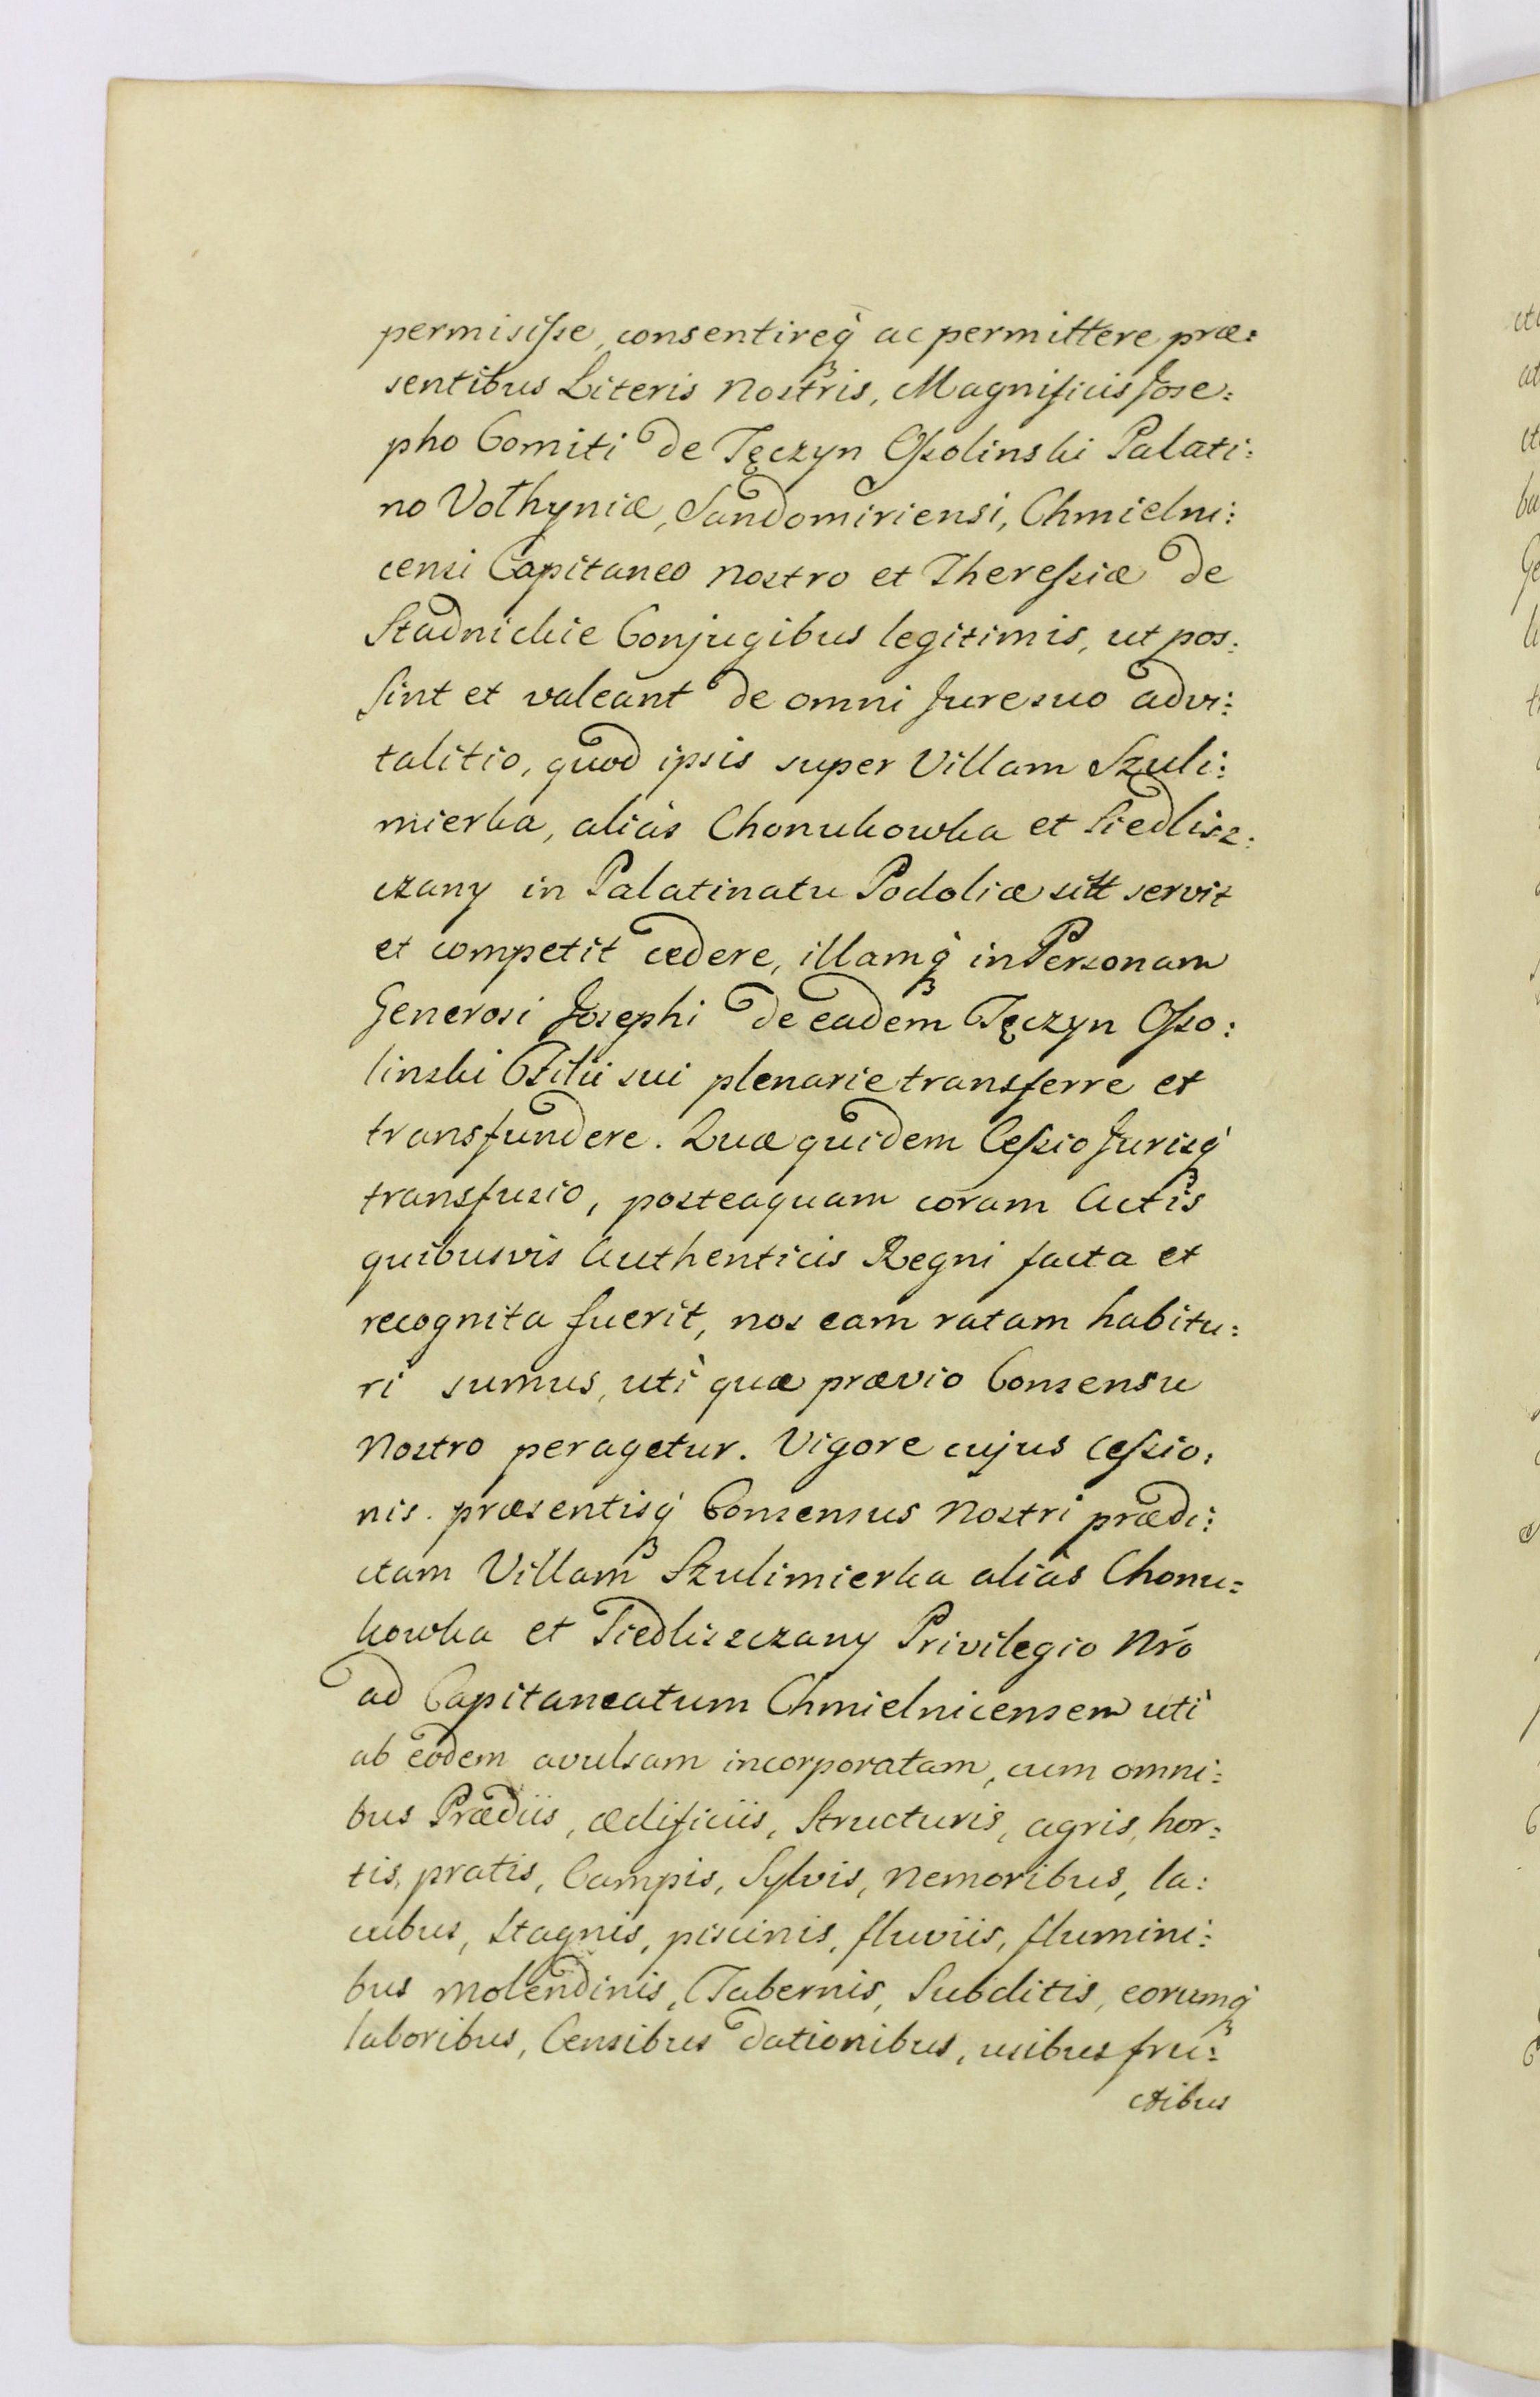 permisisse, consentireq́ ac permittere præ:
sentibus Literis Nostris, Magnificis Jose:
pho Comiti de Tęczyn Ossolinski Palati:
no Volhyniæ, Sandomiriensi, Chmielni:
censi Capitaneo Nostro et Theressiæ de
Stadnickie Conjugibus legitimis, ut pos:
sint et valeant de omni Jure suo advi:
talitio, quod ipsis super Villam Szuli:
mierka, aliàs Chonukowka et Siedlisz:
czany in Palatinatu Podoliæ sitt servit
et competit cedere, illamq́ in Personam
Generosi Josephi de eadem Tęczyn Osso:
linski Filii sui plenarie transferre et
transfundere. Quæ quidem Cessio Jurisq́
transfusio, posteaquam coram Actis
quibusvis Authenticis Regni facta et
recognita fuerit, nos eam ratam habitu:
ri sumus, utì quæ prævio Consensu
Nostro peragetur. Vigore cujus Cessio:
nis. præsentisq́ Consensus Nostri prædi:
ctam Villam Szulimierka aliàs Chonu:
kowka et Siedliszczany Privilegio Nró
ad Capitaneatum Chmielnicensem utì
ab eodem avulsam incorporatam, cum omni:
bus Prædiis, ædificiis, Structuris, agris, hor:
tis, pratis, Campis, Sylvis, Nemoribus, la:
cubus, Stagnis, piscinis, fluviis, flumini:
bus Molendinis, Tabernis, Subditis, eorumq́
laboribus, Censibus dationibus, usibus fru:
ctibus